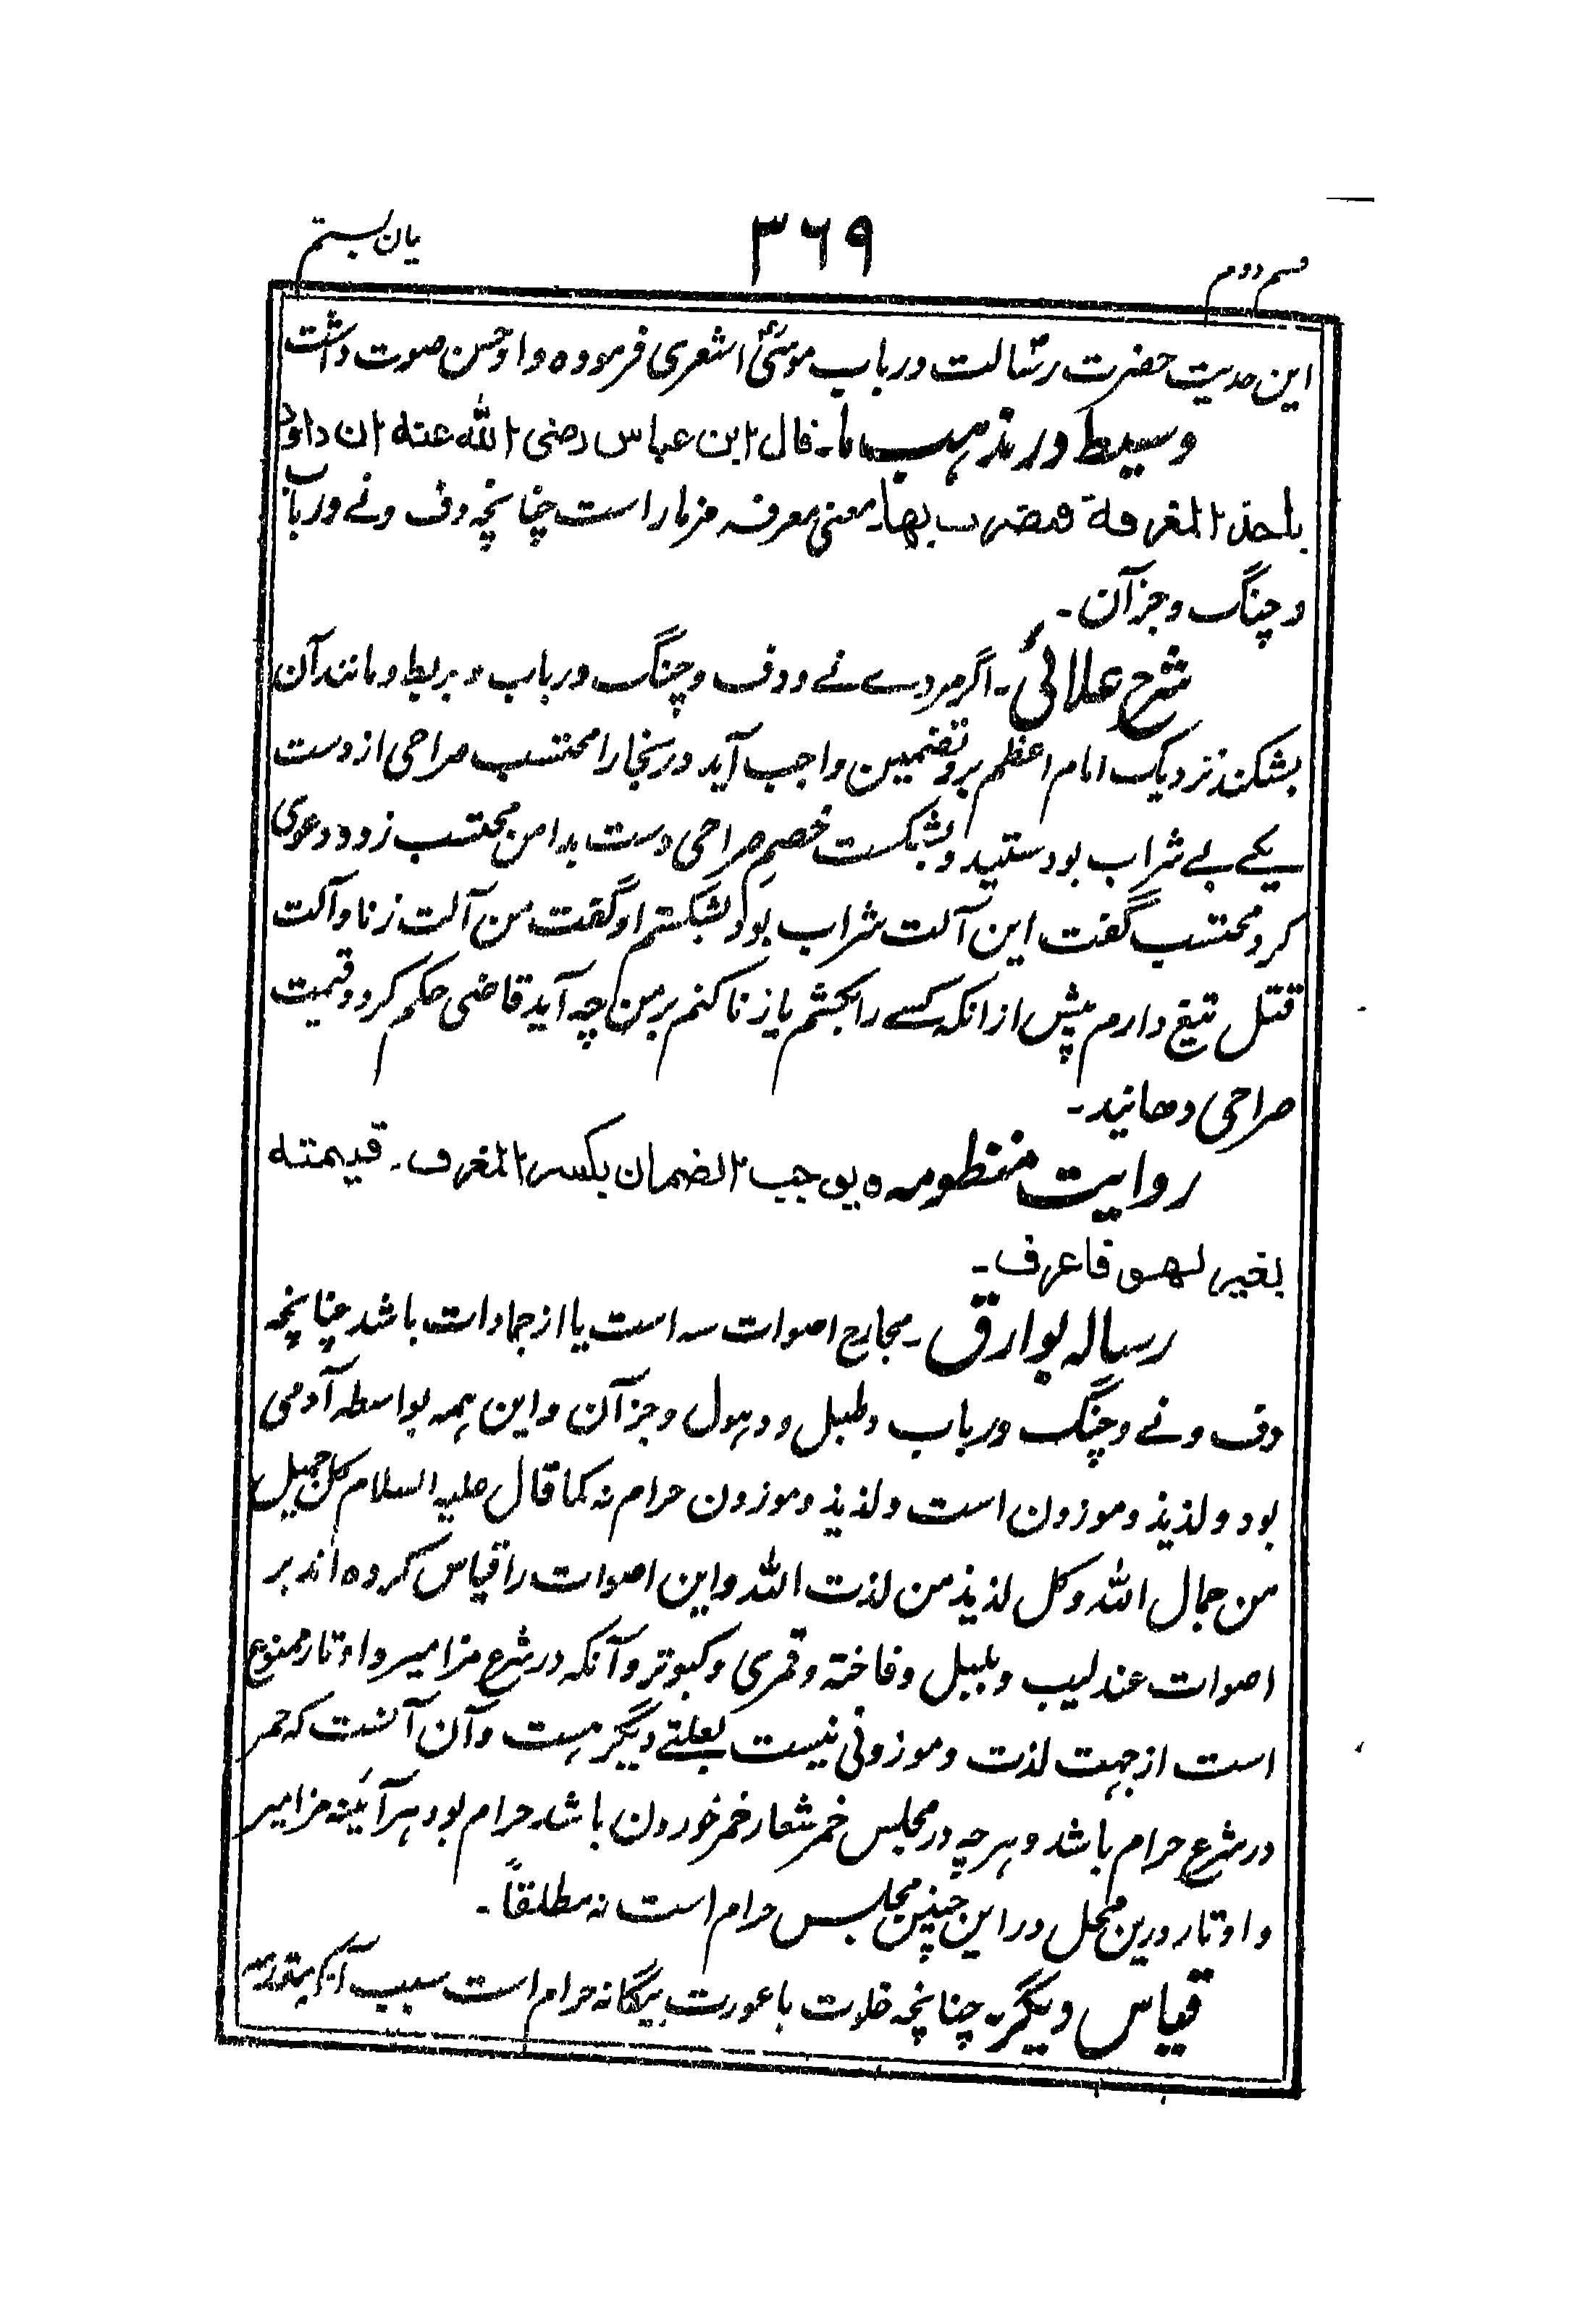 قسم دوم
۳۶۹
بیان بستم
این حدیث حضرت رسالتؐ در باب موسیؓ اشعری فرموده و او حسن صوت داشت
وسیط در مذهب ما۔ قال ابن عباس رضی الله عنه ان داود
یاخذ المغرفة فیضرب بها۔ معنی معرفه مزمار است چنانچه دف و نے و رباب
و چنگ و جز آن۔
شرح علائی۔ اگر مردے نے و دف و چنگ و رباب و بربط و مانند آن
بشکند نزدیک امام اعظم برو تضمین واجب آید در بخارا محتسب صراحی از دست
یکے بے شراب بود ستید و بشکست خصم صراحی دست بدامن محتسب زد و دعوی
کرد محتسب گفت این آلت شراب بود بشکستم او گفت من آلت زنا و آلت
قتل تیغ دارم پیش از انکه کسے را بکشم یا زنا کنم بر من چه آید قاضی حکم کرد و قیمت
صراحی دهانید۔
روایت منظومه ٥ یوجب الضمان بکسر المغرف۔ قیمته
بغیر لهو فاعرف۔
رساله بوارق۔ مجارح اصوات سه است یا از جمادات باشد چنانچه
دف و نے و چنگ و رباب و طبل و دهول و جز آن و این همه بواسطه آدمی
بود و لذیذ و موزون است و لذیذ و موزون حرام نه کما قال علیه السلام کل جمیل
من جمال الله وکل لذیذ من لذت الله و این اصوات را قیاس کرده اند بر
اصوات عندلیب و بلبل و فاخته و قمری و کبوتر و آنکه در شرع مزامیر و اوتار ممنوع
است از جهت لذت و موزونی نیست بعلتے دیگر هست و آن آنست که خمر
در شرع حرام باشد و هر چه در مجلس خمر شعار خمر خوردن باشد حرام بود هر آئینه مزامیر
و اوتار درین محل در این چنین مجلس حرام است نه مطلقاً۔
قیاس دیگر۔ چنانچه خلوت با عورت بیگانه حرام است بسبب آنکه